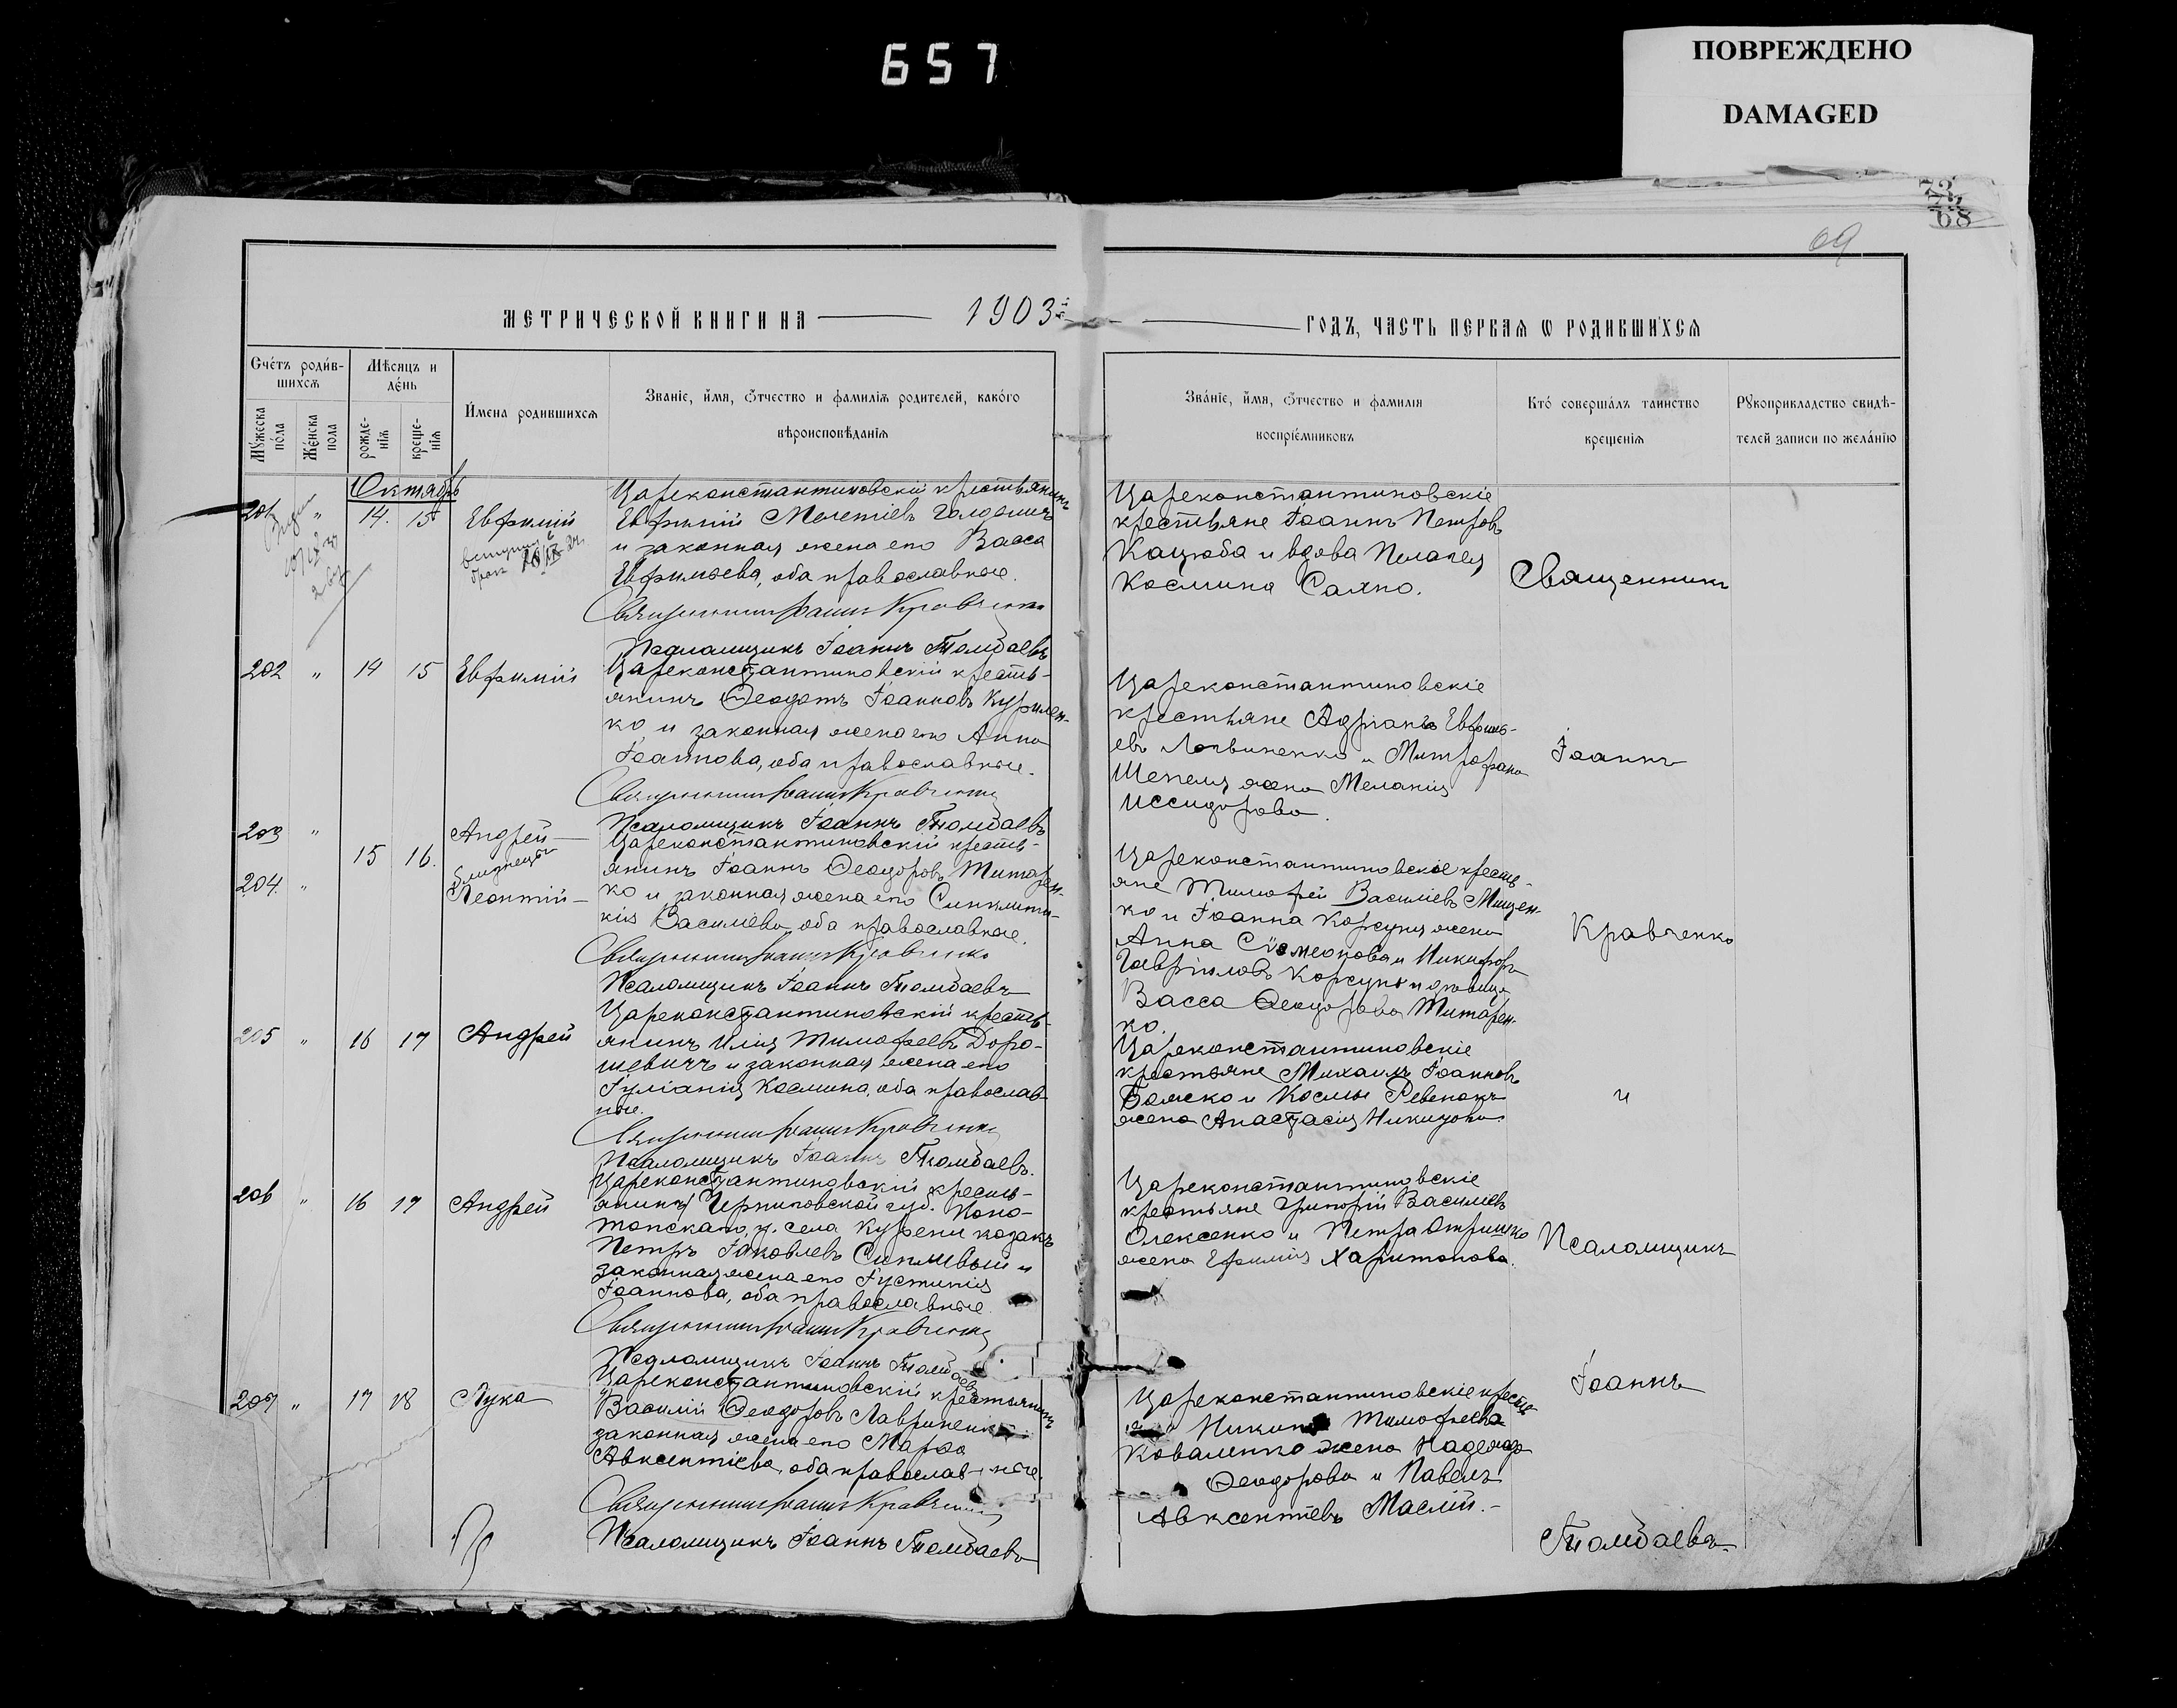 657
ПОВРЕЖДЕНО
DAMAGED
69
МЕТРИЧЕСКОЙ КНИГИ НА 1903
ГОДЪ, ЧАСТЬ ПЕРВАЯ Ѡ РОДИВШИХСѦ
Счéтъ роди́в-
шихсѧ
Мѣсяцъ и
дéнь
Мꙋ́жеска
по́ла
Же́нска
пола
рожде-
нїѧ
креще-
нїѧ
И҆мена родившихсѧ
Званїе, и҆́мя, Ѻ҆тчество и фамилїѧ родителей, како́го
вѣроисповѣданїѧ
Зва́нїе, и҆́мя, Ѻ҆тчество и фамилїя
воспрїе́мниковъ
Кто́ соверша́лъ таинство
крещенїѧ
Рꙋкоприкладство свидѣ-
телей записи по жела́нїю
Октябрь
201 " 14. 15 Евфимій
Цареконстантиновскій крестьянинъ
Евфимій Мелетіевъ
и законная жена его Васса
Евфимьева, оба православные.
Священникъ Іоаннъ Кравченко
Псаломщикъ Іоаннъ Томбаевъ
Цареконстантиновскіе
крестьяне Іоаннъ Петровъ
Кацюба и вдова Пелагея
Космина Сахно.
Священникъ
202 " 14 15 Евфимій
Цареконстантиновскій кресть-
янинъ Ѳеодотъ Іоанновъ Курилен-
ко и законная жена его Анна
Іоаннова, оба православные.
Священникъ Іоаннъ Кравченко
Псаломщикъ Іоаннъ Томбаевъ
Цареконстантиновскіе
крестьяне Адріанъ Евфимь-
евъ Логвиненко и Митрофана
Шепеля жена Меланія
Иссидорова.
Іоаннъ
203 " Андрей
15 16.
близнецы
204. " Леонтій
Цареконстантиновскій кресть-
янинъ Іоаннъ Ѳеодоровъ Титарен-
ко и законная жена его Синклити-
кія Василіева, оба православные.
Священникъ Іоаннъ Кравченко
Псаломщикъ Іоаннъ Томбаевъ
Цареконстантиновскіе кресть-
яне Тимофей Василіевъ Мищен-
ко и Іоанна Корсуна жена
Анна Сѵмеонова и Никифоръ
Гавріиловъ Корсунъ и девица
Васса Ѳеодорова Титарен-
ко.
Кравченко
205 " 16 17 Андрей
Цареконстантиновскій кресть-
янинъ Илія Тимофеевъ Доро-
шевичъ и законная жена его
Іуліанія Космина, оба православ-
ные.
Священникъ Іоаннъ Кравченко
Псаломщикъ Іоаннъ Томбаевъ.
Цареконстантиновскіе
крестьяне Михаилъ Іоанновъ
Божско и Космы Ревенокъ
жена Анастасія Никитова.
и
206 " 16 17 Андрей
Цареконстантиновскій кресть-
янинъ Черниговской губ. Коно-
топскаго у. села Курени козакъ
Петръ Іаковлевъ Сипливый и
законная жена его Іустинія
Іоаннова, оба православные.
Священникъ Іоаннъ Кравченко
Псаломщикъ Іоаннъ Томбаевъ
Цареконстантиновскіе
крестьяне Григорій Василіевъ
Олексенко и Петра Отришко
жена Ефимія Харитонова.
Псаломщикъ
207 " 17 18 Лука
Цареконстантиновскій крестьянинъ
Василій Ѳеодоровъ Лавриненко
законная жена его Марѳа
Авксентіева, оба православные.
Священникъ Іоаннъ Кравченко
Псаломщикъ Іоаннъ Томбаевъ
Цареконстантиновскіе кресть-
Никиты Тимофеева
Коваленко жена Надежда
Ѳеодорова и Павелъ
Авксентіевъ Маслій.
Іоаннъ
Томбаевъ